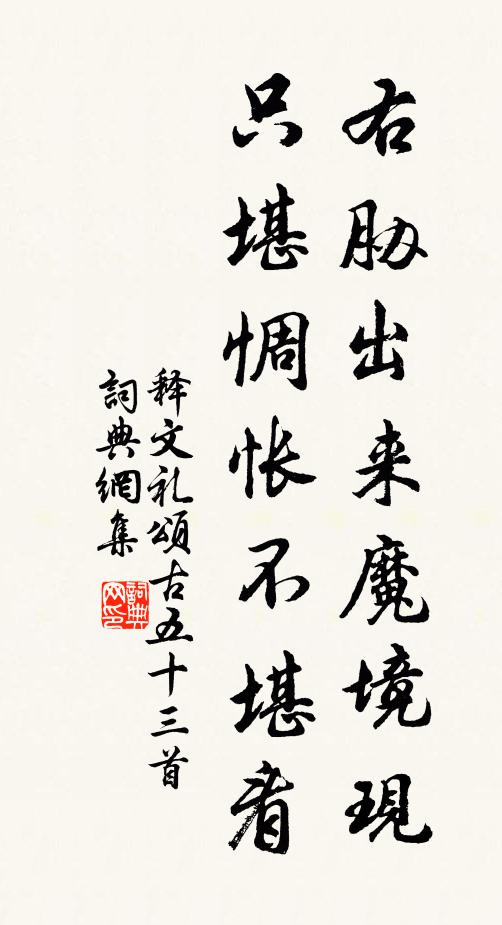 右胁出来魔境現
只堪惆怅不堪看
释文礼頌古五十三首
詞典網集
詞典网印